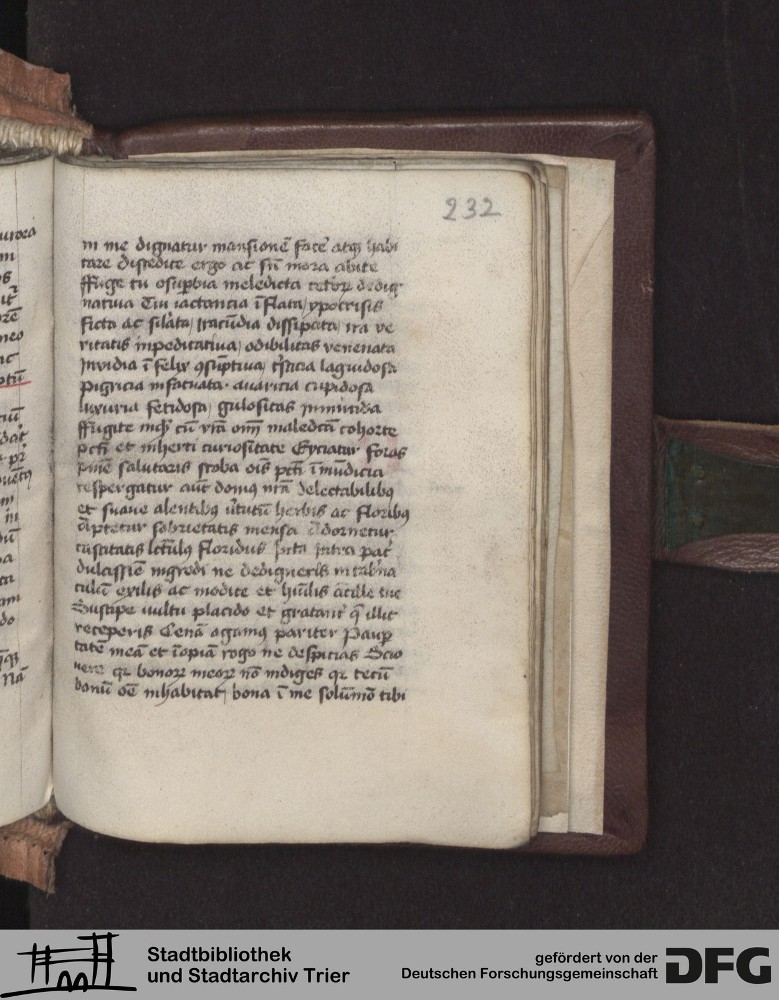 232
in me dignatur mansionē facē atqꝫ habi
tare Discedite ergo ac sñ mora abite
ffuge tu osupbia meledicta dedig
nativa Tu iactancia īflata ypocrisis
ficta ac silata iracūdia dissipata ira ve
ritatis inpeditativa odibilitas venenata
Invidia īfelix ꝯsūptiva tsticia laguidosa
pigricia infatuata avaricia cupidosa
luxuria fetidosa gulositas inmunda
ffugite cū vrā omī maledcā cohorte
pcti et inherti curiositate Eyciatur foras
salutaris scoba ois pcti īmūdicia
respergatur aūt domꝰ nrā delectabilibꝰ
et suave alentibꝰ ūtutū herbis ac floribꝰ
aptetur sobrietatis mensa Adornetur
castitatis lctūlꝰ floridus intra
dulcissīe ingredi ne dedigneris in tabna
culū exilis ac modice et hūilis ācille tue
Suscipe vultu placido et gratant q̄ illic
receperis Cenā agamꝰ pariter Paup
tatē meā et īopiā rogo ne despicias Scio
bonoꝝ meoꝝ nō indiges qꝛ tecū
bonū oē inhabitat bona ī me solūmō tibi
Stadtbibliothek
und Stadtarchiv Trier
gefördert von der
Deutschen Forschungsgemeinschaft
DFG